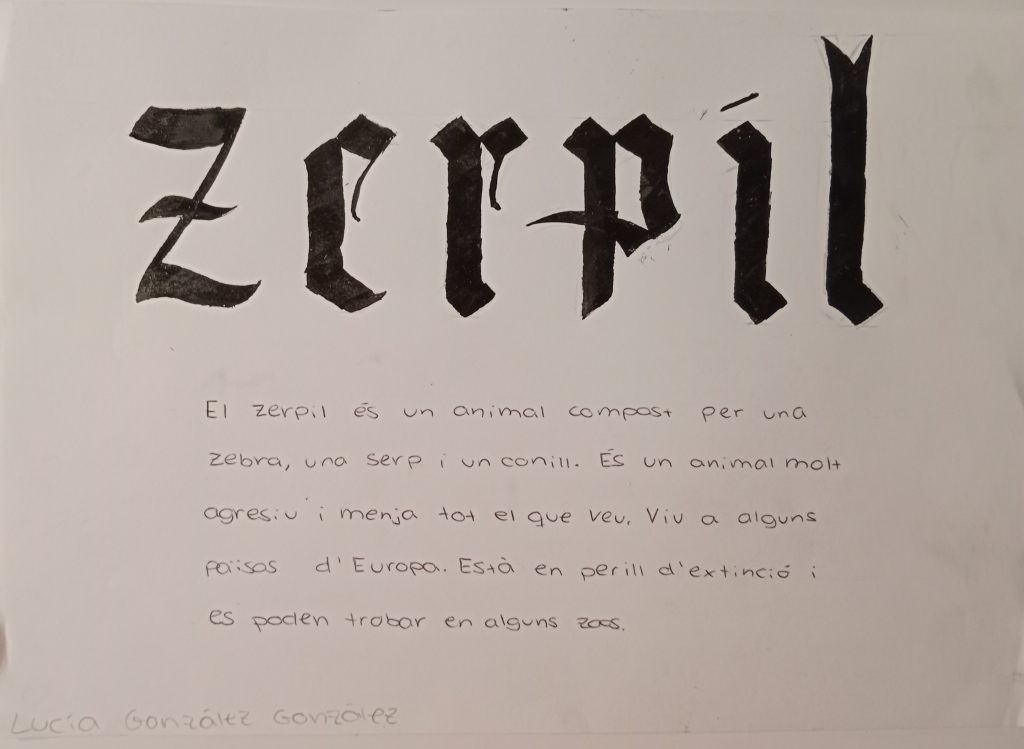 Zerpil
El zerpil és un animal compost per una
zebra, una serp i un conill. És un animal molt
agressiu i menja tot el que veu. Viu a alguns
països d'Europa. Està en perill d'extinció i
es poden trobar en alguns zoos.
Lucía González González